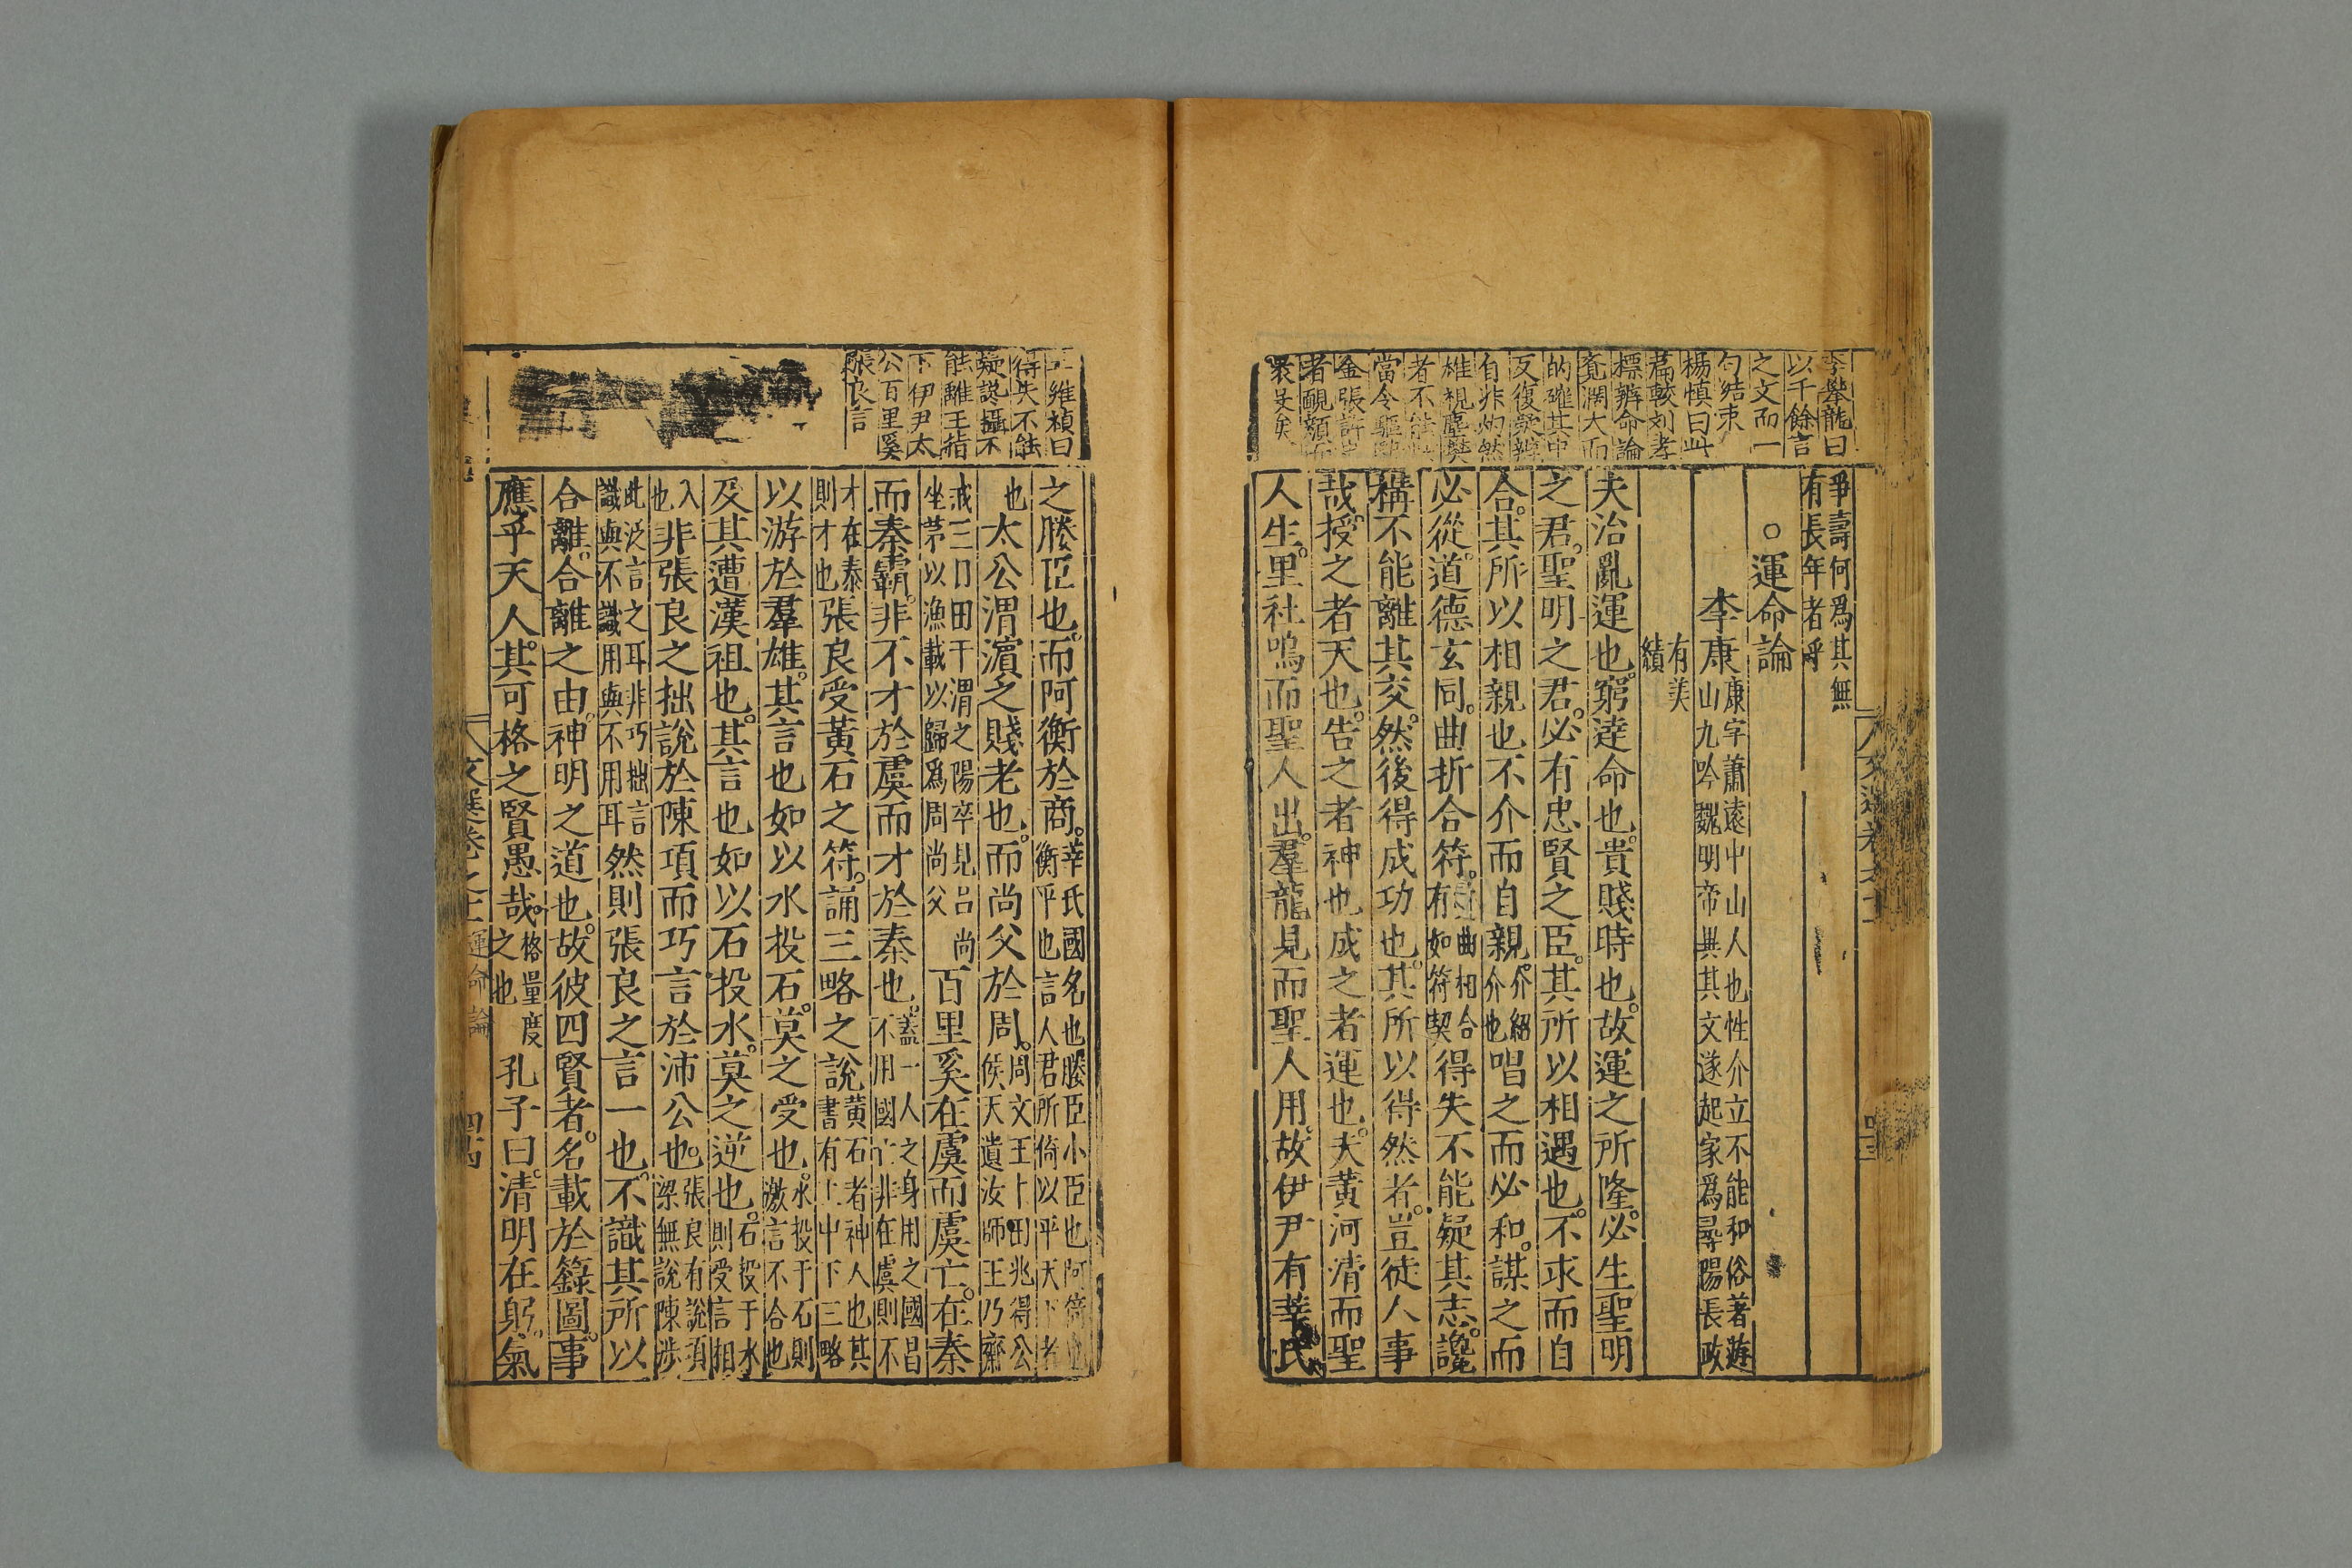 李攀龍曰
以千餘言
之文而一
句結束
楊慎曰此
篇較刘孝
標辨命論
竟濶大而
的確其中
反復疑辨
自非灼然
雄視塵樊
者不能
當令驅
金張許
者靦顏
裂是矣
爭壽何爲其無
有長年者乎
○運命論
李康康字蕭遠中山人也性介立不能和俗著遊
山九吟魏明帝異其文遂起家爲尋陽長政
有美
績
夫治亂運也窮達命也貴賤時也故運之所隆必生聖明
之君聖明之君必有忠賢之臣其所以相遇也不求而自
合其所以相親也不介而自親介紹
介也唱之而必和謀之而
必從道德玄同曲折合符曲相合
有如符契得失不能疑其志讒
構不能離其交然後得成功也其所以得然者豈徒人事
哉授之者天也告之者神也成之者運也夫黃河清而聖
人生里社鳴而聖人出羣龍見而聖人用故伊尹有莘氏
王維楨曰
得失不能
疑讒搆不
能離王指
下伊尹太
公百里奚
張良言
之媵臣也而阿衡於商莘氏國名也媵臣小臣也阿倚也
衡平也言人君所倚以平天下者
也太公渭濱之賤老也而尚父於周周文王卜田兆得公
侯天遺汝師王乃齋
戒三日田于渭之陽卒見呂尚
坐茅以漁載以歸爲周尚父百里奚在虞而虞亡在秦
而秦霸非不才於虞而才於秦也蓋一人之身用之國昌
不用國亡非在虞則不
才在泰
則才也張良受黃石之符誦三略之說黃石者神人也其
書有上中下三略
以游於羣雄其言也如以水投石莫之受也水投于石則
激言不合也
及其遭漢祖也其言也如以石投水莫之逆也石投于水
則受言相
入
也非張良之拙說於陳項而巧言於沛公也張良有說項
梁無說陳涉
此泛言之耳非巧拙言
識與不識用與不用耳然則張良之言一也不識其所以
合離合離之由神明之道也故彼四賢者名載於籙圖事
應乎天人其可格之賢愚哉格量度
之也孔子曰清明在躬氣
文選卷之士運命論
四古